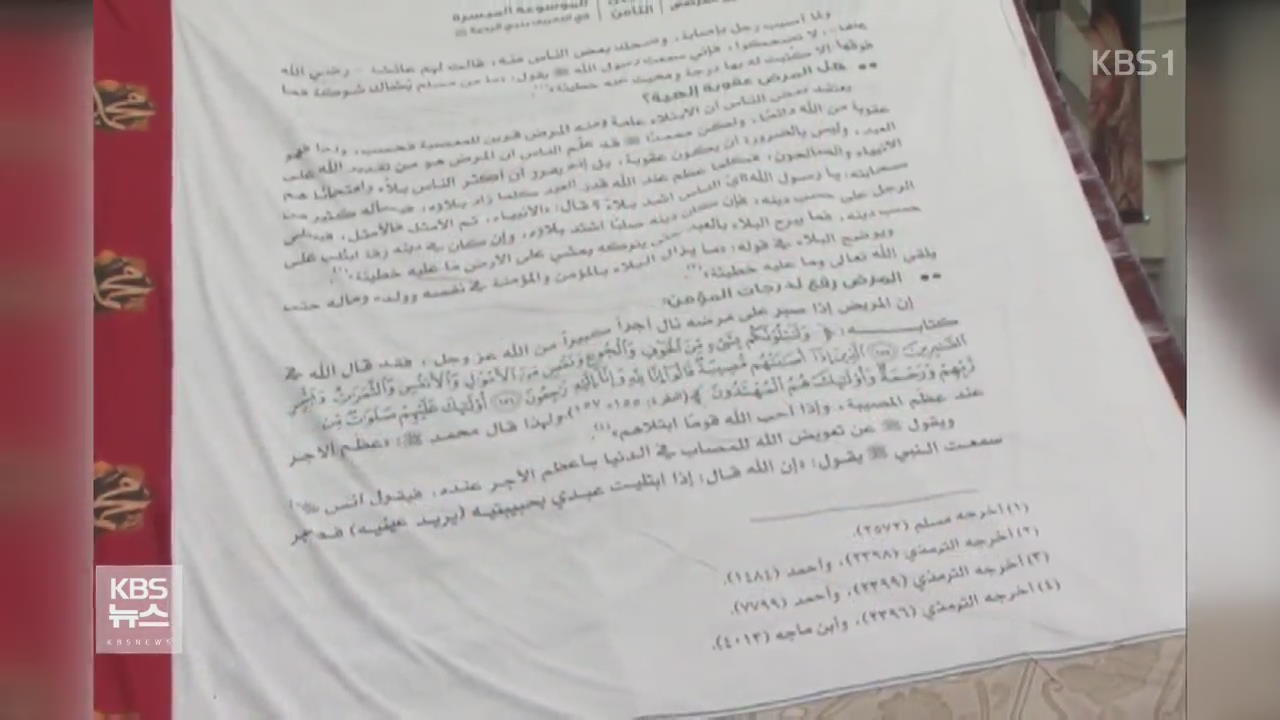 KBS1
الموسوعة الميسرة
الثامن
ولما أصيب رجل بإصابة، وضحك بعض الناس منه، قالت لهم عائشة - رضي الله
عنها -: لا تضحكوا، فإني سمعت رسول الله ﷺ يقول: «ما من مسلم يُشاك شوكة فما
فوقها إلا كُتبت له بها درجة ومحيت عنه خطيئة»(١).
•• هل المرض عقوبة إلهية؟
يعتقد بعض الناس أن الابتلاء عامة ومنه المرض قرين للمعصية فحسب، وإنما هو
عقوبة من الله دائمًا، ولكن محمدًا ﷺ قد علّم الناس أن المرض هو من تقدير الله على
العبد، وليس بالضرورة أن يكون عقوبة، بل إنه يقرر أن أكثر الناس بلاءً وامتحانًا هم
الأنبياء والصالحون، فكلما عظم عند الله قدر العبد كلما زاد بلاؤه،
صحابته: يا رسول الله أي الناس أشد بلاءً؟ قال: «الأنبياء، ثم الأمثل فالأمثل، فيبتلى
الرجل على حسب دينه، فإن كان دينه صلبًا اشتد بلاؤه، وإن كان في دينه رقة ابتلي على
حسب دينه، فما يبرح البلاء بالعبد حتى يتركه يمشي على الأرض ما عليه خطيئة»(٢).
ويوضح البلاء في قوله: «ما يزال البلاء بالمؤمن والمؤمنة في نفسه وولده وماله حتى
يلقى الله تعالى وما عليه خطيئة»(٣).
•• المرض رفع لدرجات المؤمن:
إن المريض إذا صبر على مرضه نال أجراً كبيراً من الله عز وجل، فقد قال الله في
كتابه: ﴿ وَلَنَبْلُوَنَّكُم بِشَيْءٍ مِّنَ الْخَوْفِ وَالْجُوعِ وَنَقْصٍ مِّنَ الْأَمْوَالِ وَالْأَنفُسِ وَالثَّمَرَاتِ وَبَشِّرِ
الصَّابِرِينَ (١٥٥) الَّذِينَ إِذَا أَصَابَتْهُم مُّصِيبَةٌ قَالُوا إِنَّا لِلَّهِ وَإِنَّا إِلَيْهِ رَاجِعُونَ (١٥٦) أُولَٰئِكَ عَلَيْهِمْ صَلَوَاتٌ مِّن
رَّبِّهِمْ وَرَحْمَةٌ وَأُولَٰئِكَ هُمُ الْمُهْتَدُونَ ﴾ (البقرة: ١٥٥ - ١٥٧) ولهذا قال محمد ﷺ: «عظم الأجر
عند عظم المصيبة، وإذا أحب الله قومًا ابتلاهم»(٤).
ويقول ﷺ عن تعويض الله للمصاب في الدنيا بأعظم الأجر عنده، فيقول أنس
سمعت النبي ﷺ يقول: «إن الله قال: إذا ابتليت عبدي بحبيبتيه (يريد عينيه) فصبر
(١) أخرجه مسلم (٢٥٧٢).
(٢) أخرجه الترمذي (٢٣٩٨)، وأحمد (١٤٨٤).
(٣) أخرجه الترمذي (٢٣٩٩)، وأحمد (٧٧٩٩).
(٤) أخرجه الترمذي (٢٣٩٦)، وابن ماجه (٤٠١٣).
KBS
뉴스
KBSNEWS